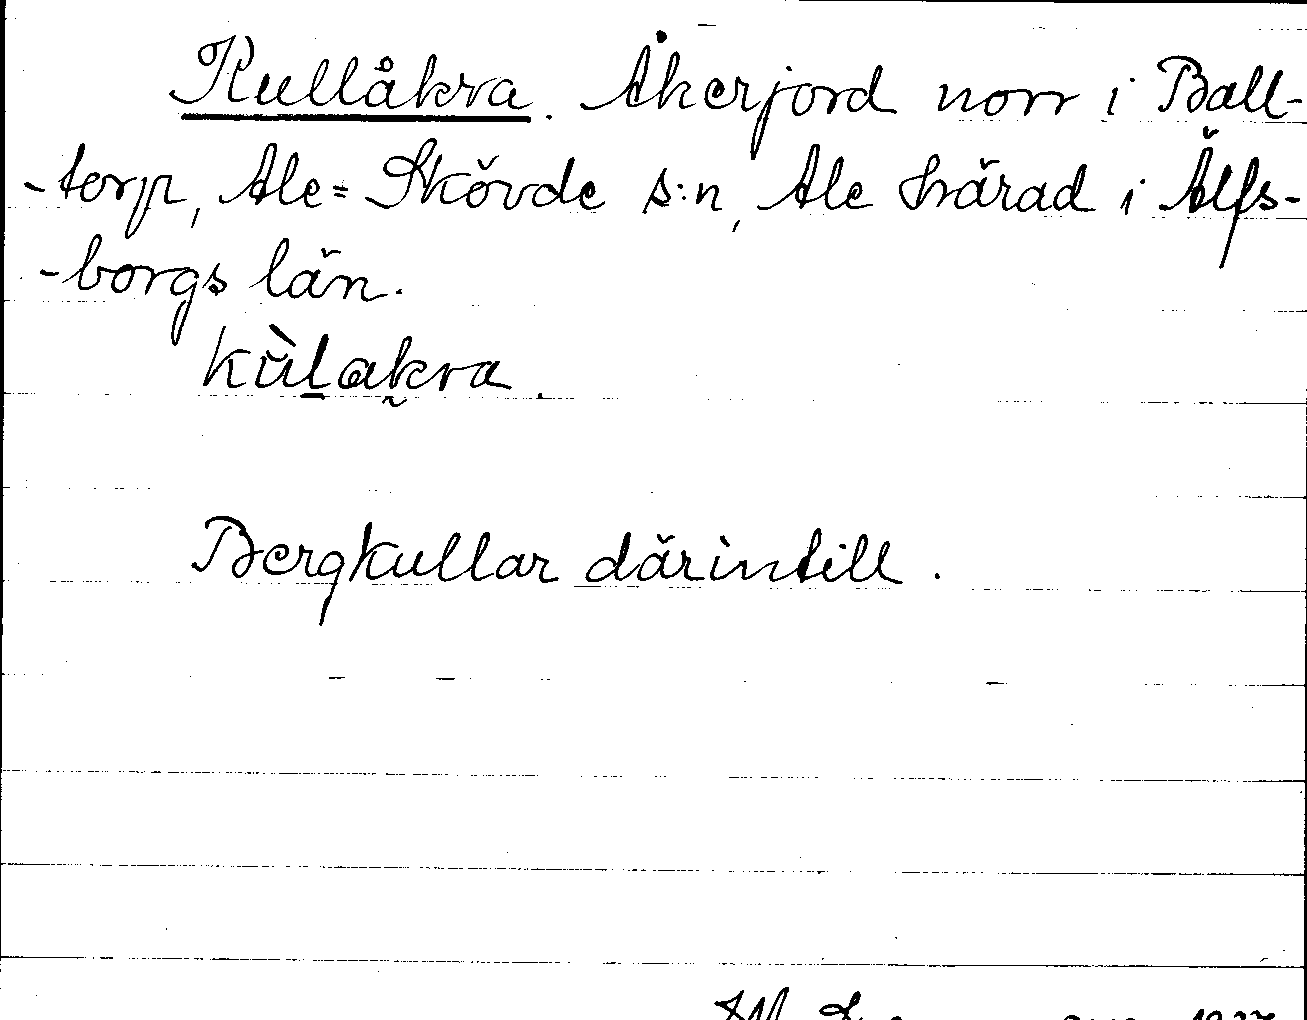 Kullåkra. Åkerjord norr i Ball-
-torp, Ale=Skövde s:n, Ale härad i Älfs-
-borgs län.
kùlakra.
Bergkullar därintill.